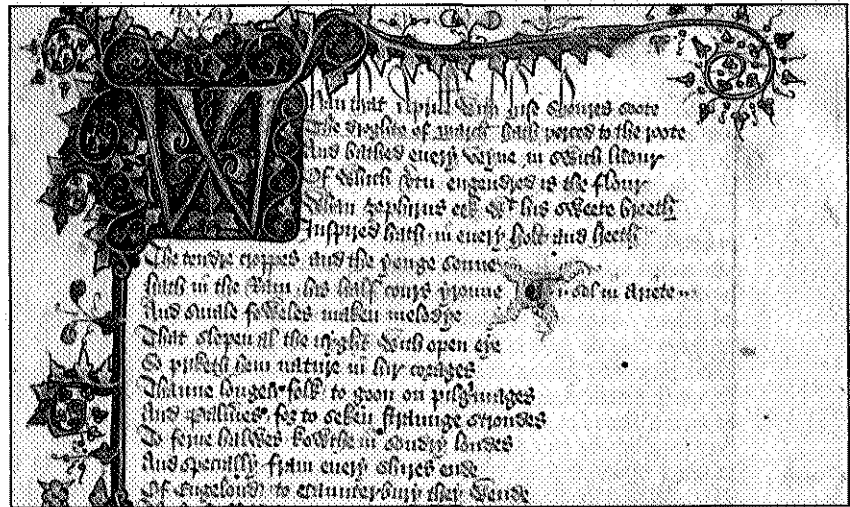 Whan that Aprill with hise shoures soote
The droghte of March hath perced to the roote
And bathed euery veyne in swich licour
Of which vertu engendred is the flour
Whan zephirus eek wt his sweete breeth
Inspired hath in euery holt and heeth
The tendre croppes and the yonge sonne
Hath in the Ram his half cours yronne ·i· sol in Ariete
And smale foweles maken melodye
That slepen al the nyght with open eye
So priketh hem nature in hir corages
Thanne longen folk to goon on pilgrimages
And Palmeres for to seken straunge strondes
To ferne halwes kowthe in sondry londes
And specially fram euery shires ende
Of Engelond to Caunterbury they wende